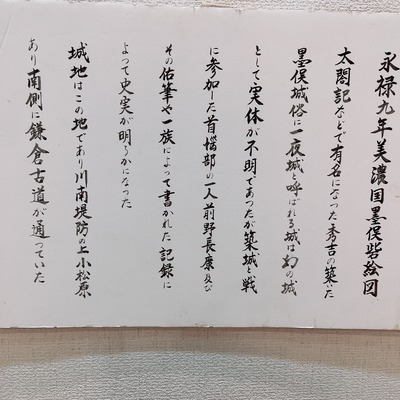 永禄九年美濃国墨俣砦絵図
太閤記などで有名になった秀吉の築いた
墨俣城俗に一夜城と呼ばれる城は幻の城
として実体が不明であったが築城と戦
に参加した首脳部の一人前野長康及び
その佑筆や一族によって書かれた記録に
よって史実が明らかになった
城地はこの地であり川南堤防の上小松原
あり南側に鎌倉古道が通っていた